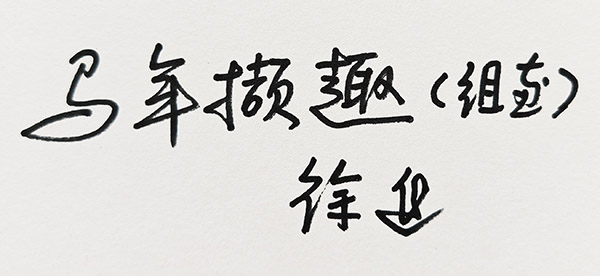 马年撷趣（组画）
徐